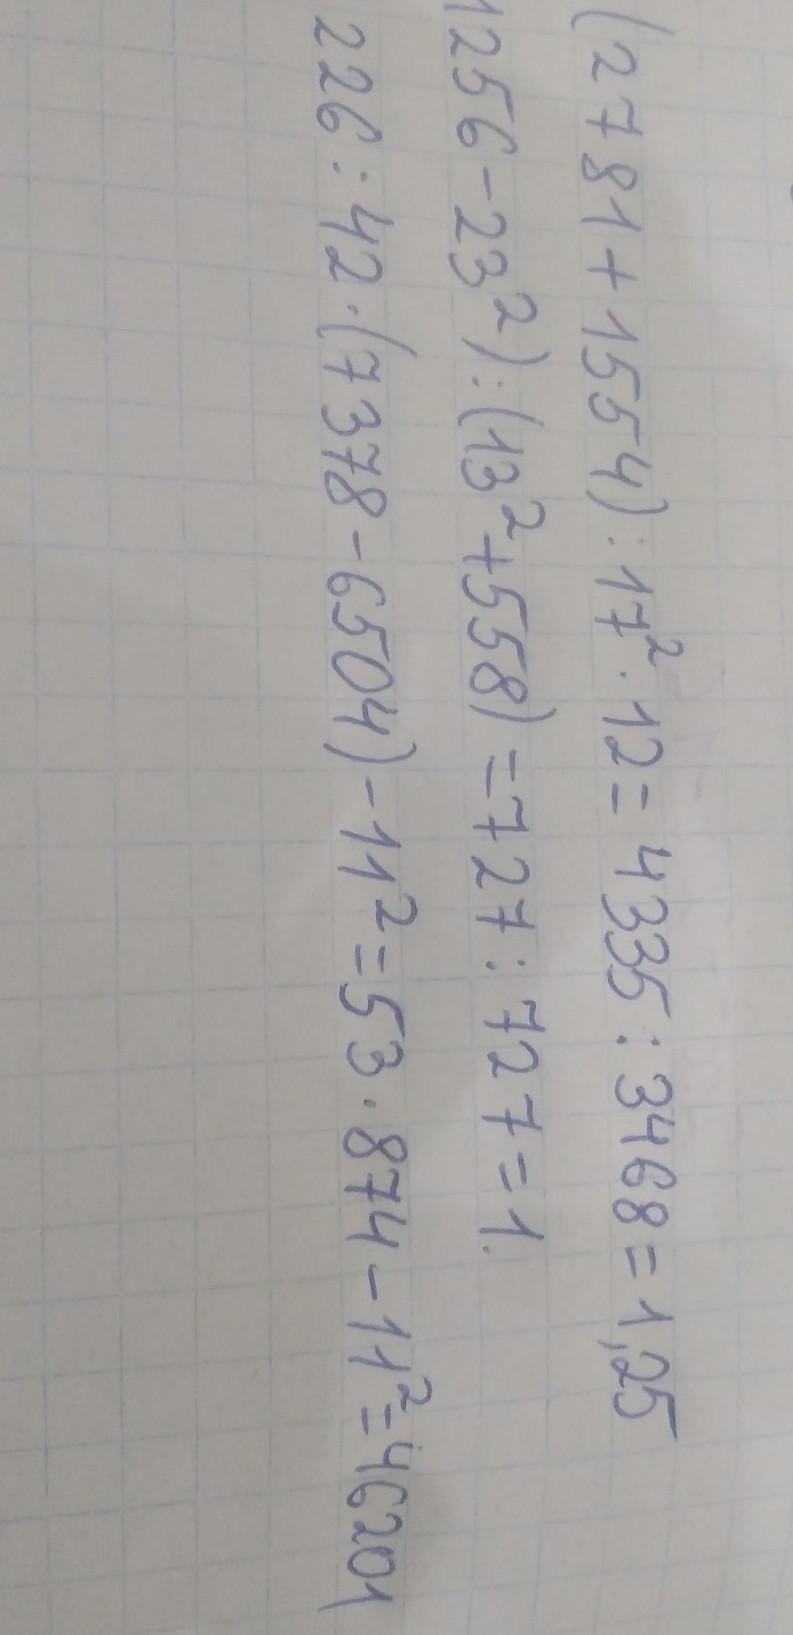 (2781+1554):17²·12=4335:3468=1,25
1256-23²):(13²+558)=727:727=1.
226:42·(7378-6504)-11²=53·874-11²=46201